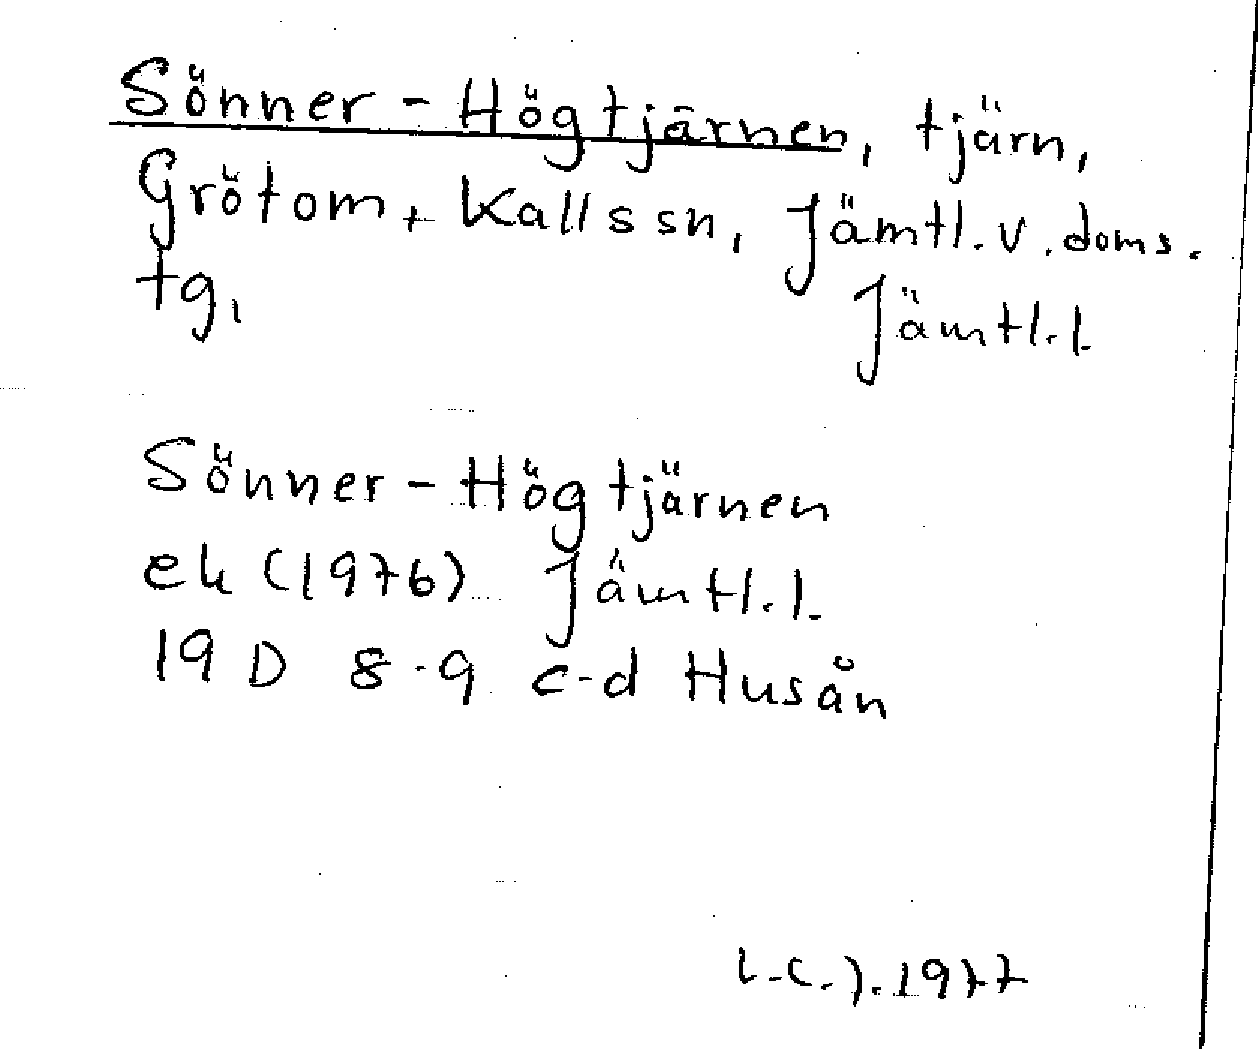 Sönner-Högtjärnen, tjärn,
Grötom + Kalls sn, Jämtl.v.doms.
tg,
Jämtl.l.
Sönner-Högtjärnen
ek (1976) Jämtl.l.
19 D 8-9 c-d Husån
L.C.J. 1977